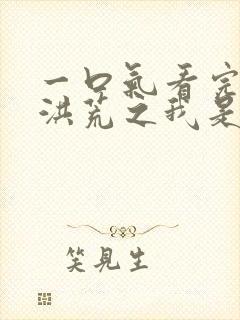 一口氣看完
洪荒之我是
笑見生